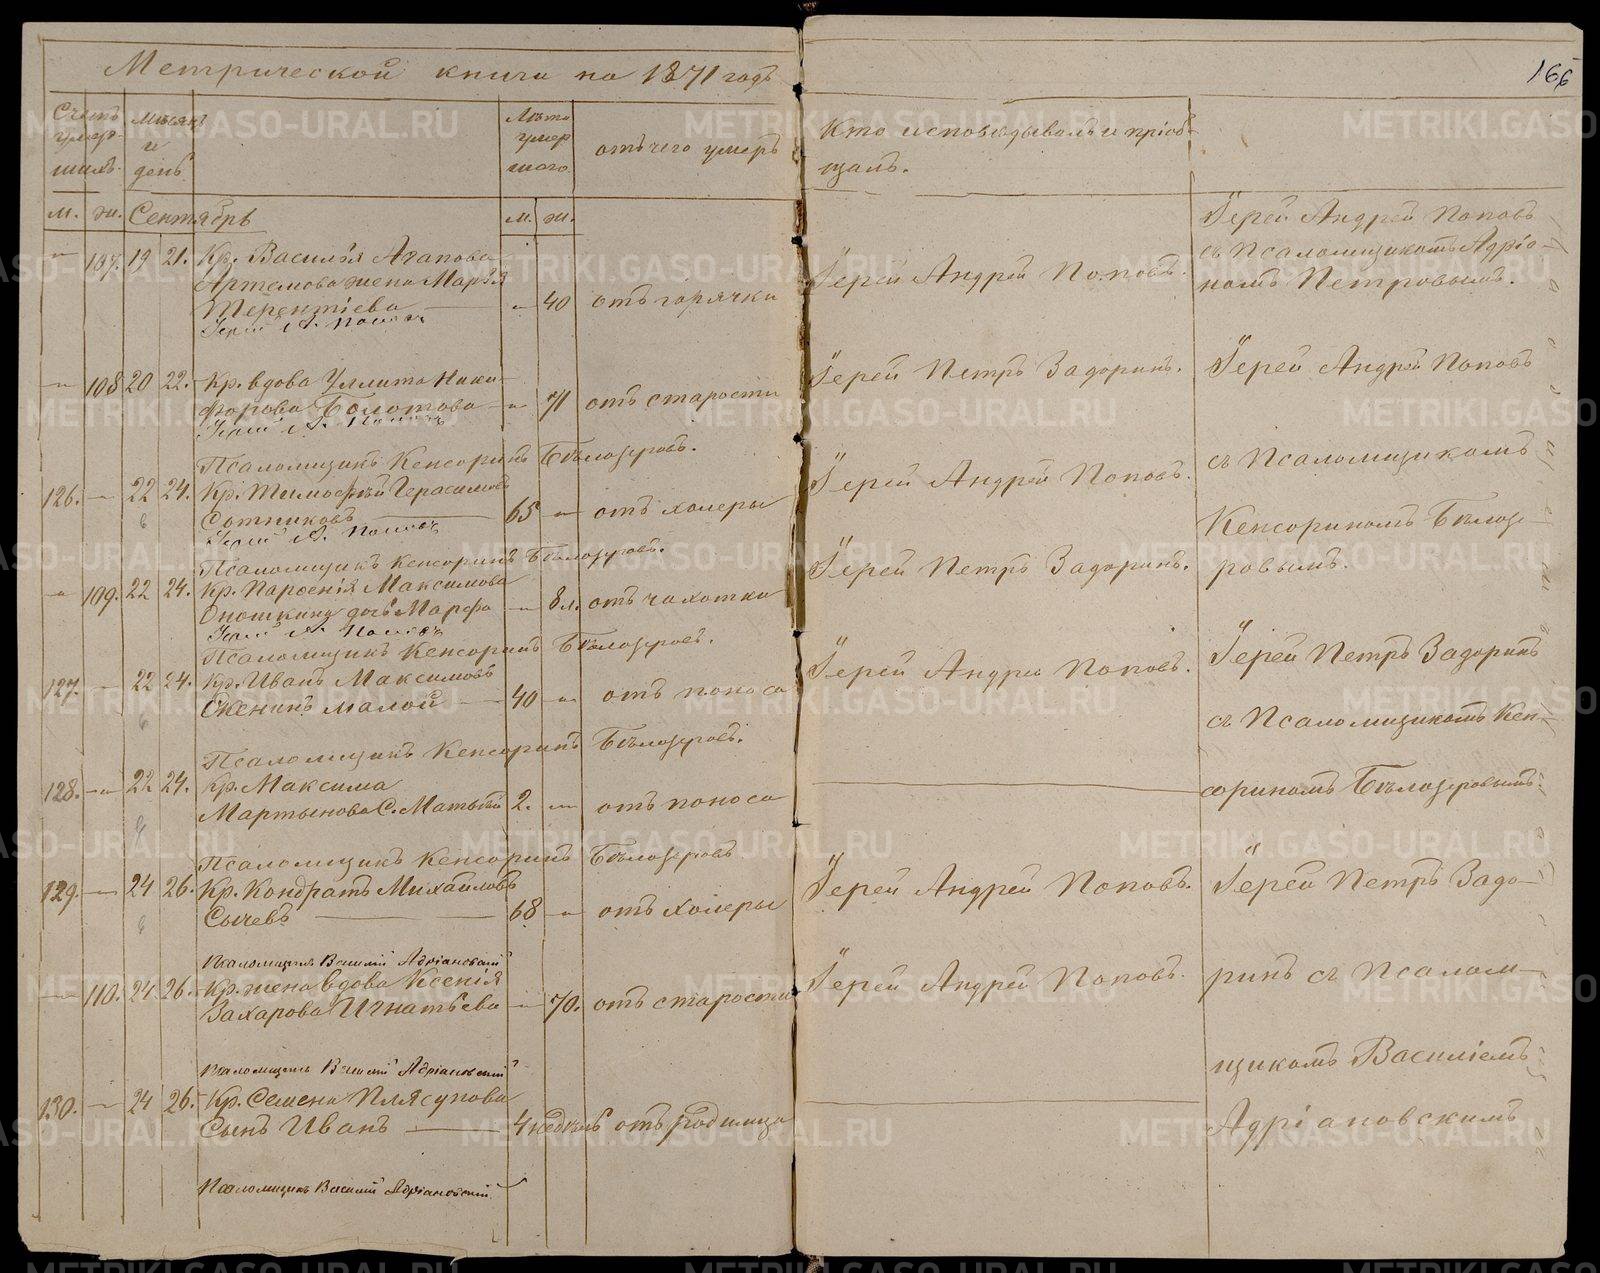 Метрической книги на 1871 годъ
166
Счетъ умер-шихъ.
Мѣсяцъ и день.
Лѣта умер шаго.
отъ чего умеръ
Кто исповѣдывалъ и пріоб-
щалъ.
м. ж. Сентябрь м. ж.
" 107. 19 21. Кр. Василья Агапова
Артемова жена Марѳа
Терентіева " 40 отъ горячки
Іерей А. Поповъ
Іерей Андрей Поповъ.
Іерей Андрей Поповъ
съ Псаломщикомъ Адріа-
номъ Петровымъ.
" 108 20 22. Кр. вдова Уллита Ники-
форова Болотова " 71 отъ старости
Іерей А. Поповъ
Іерей Петръ Задоринъ.
Іерей Андрей Поповъ
Псаломщикъ Кенсоринъ Бѣлозеровъ.
126. " 22 24. Кр. Тимофѣй Герасимовъ
Сотниковъ 65 " отъ холеры
Іерей А. Поповъ
Іерей Андрей Поповъ.
съ Псаломщикомъ
Кенсориномъ Бѣлозе-
ровымъ.
Псаломщикъ Кенсоринъ Бѣлозеровъ.
" 109. 22 24. Кр. Парѳенія Максимова
Оношкина дочь Марфа " 8 л. отъ чахотки
Іерей А. Поповъ
Іерей Петръ Задоринъ.
Псаломщикъ Кенсоринъ Бѣлозеровъ.
127. " 22 24. Кр. Иванъ Максимовъ
Скенинъ малой 40 " отъ поноса
Іерей Андрей Поповъ.
Іерей Петръ Задоринъ
съ Псаломщикомъ Кен-
сориномъ Бѣлозеровымъ.
Псаломщикъ Кенсоринъ Бѣлозеровъ.
128. " 22 24. Кр. Максима
Мартынова С. Матвѣй 2. " отъ поноса
Псаломщикъ Кенсоринъ Бѣлозеровъ
129. " 24 26. Кр. Кондратъ Михайловъ
Сычевъ 68 " отъ холеры
Іерей Андрей Поповъ.
Іерей Петръ Задо-
ринъ съ Псалом-
щикомъ Василіемъ
Адріановскимъ
Псаломщикъ Василій Адріановскій
" 110. 24 26. Кр. жена вдова Ксенія
Захарова Игнатьева " 70. отъ старости
Іерей Андрей Поповъ.
Псаломщикъ Василій Адріановскій
130. " 24 26. Кр. Семена Плясунова
Сынъ Иванъ 4 недѣль отъ родимца
Псаломщикъ Василій Адріановскій
METRIKI.GASO-URAL.RU